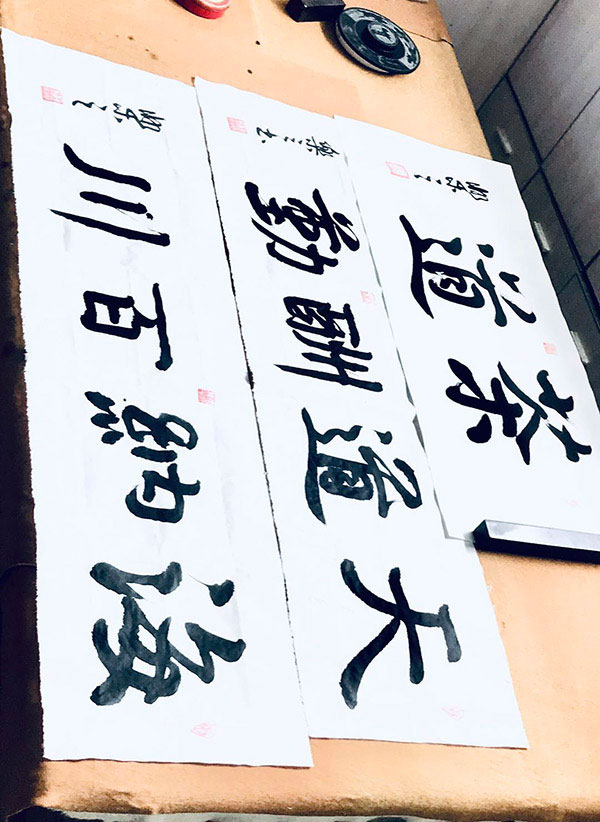 茶道
天道酬勤
海納百川